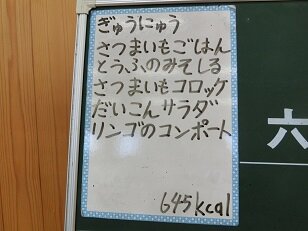 ぎゅうにゅう
さつまいもごはん
とうふのみそしる
さつまいもコロッケ
だいこんサラダ
リンゴのコンポート
645kcal
六